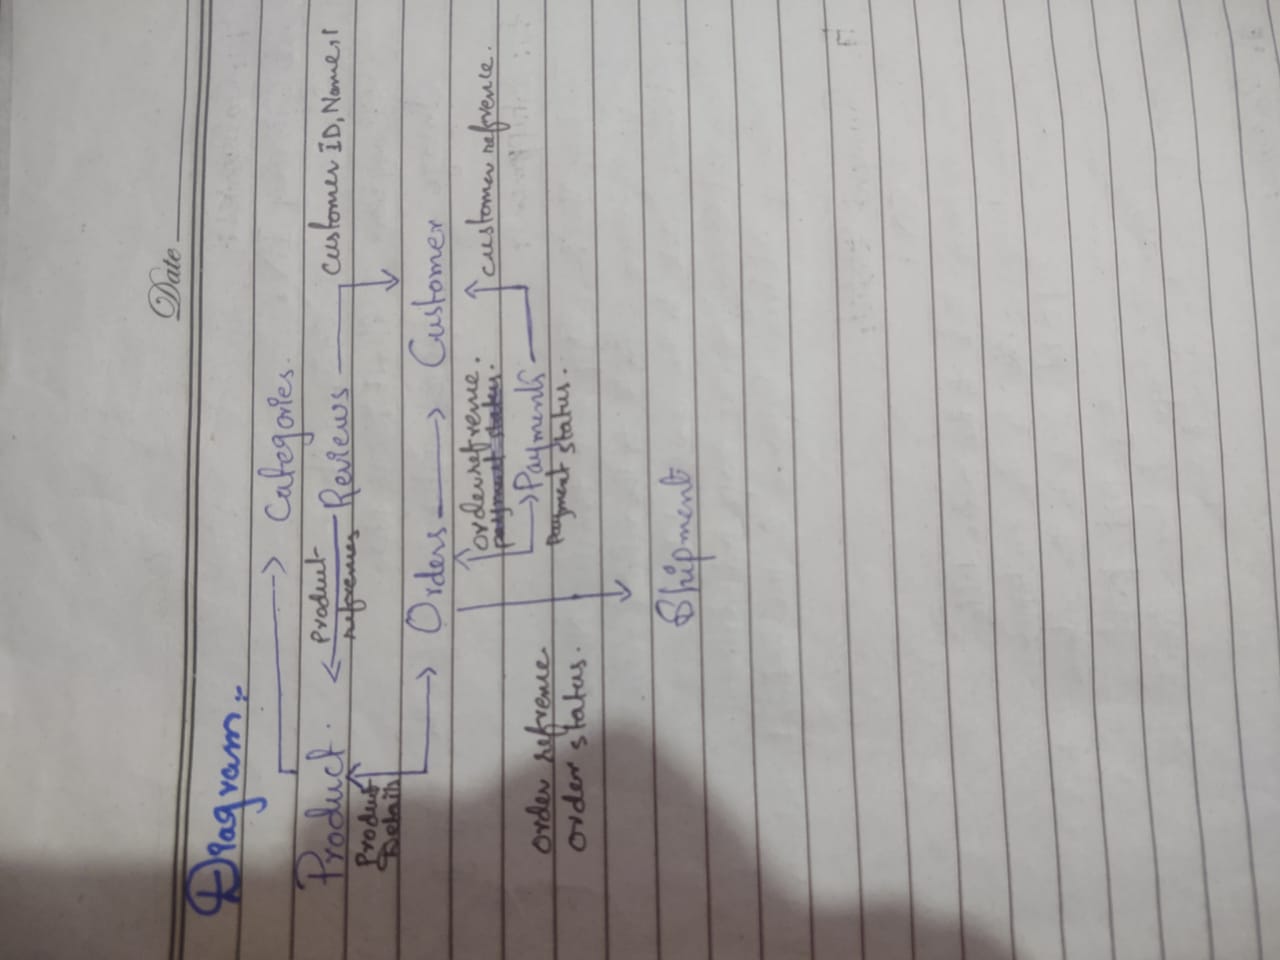 Date
Diagram:-
Categories.
Product.
Product
refrences
Reviews
customer ID, Name,
Product
Details
Orders
Customer
order refrence.
payment status.
customer refrence.
Payments
Payment status.
order refrence
order status.
Shipment